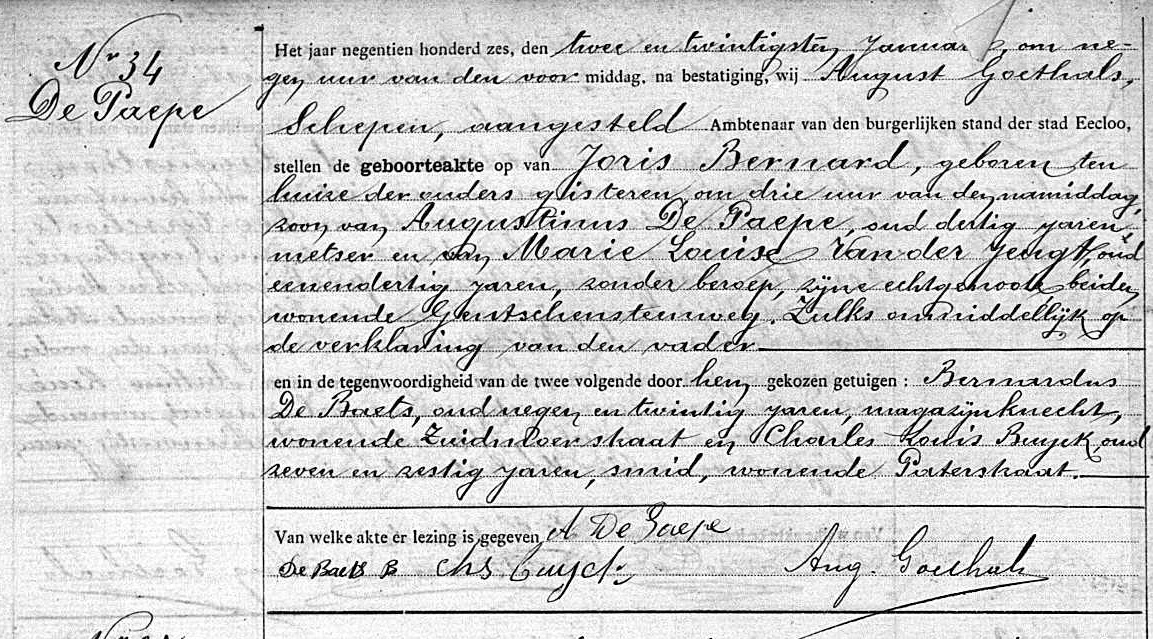 Nr 34
De Paepe
Het jaar negentien honderd zes, den twee en twintigsten Januari, om ne-
gen uur van den voor middag, na bestatiging, wij August Goethals,
Schepen, aangesteld Ambtenaar van den burgerlijken stand der stad Eecloo,
stellen de geboorteakte op van Joris Bernard, geboren ten
huize der ouders gisteren om drie uur van den namiddag,
zoon van Augustinus De Paepe, oud dertig jaren
metser en van Marie Louise Van der Jeugt, oud
eenendertig jaren, zonder beroep, zijne echtgenoote beiden
wonende Gentschensteenweg. Zulks onmiddellijk op
de verklaring van den vader
en in de tegenwoordigheid van de twee volgende door hen gekozen getuigen : Bernardus
De Baets, oud negen en twintig jaren, magazijnknecht,
wonende Zuidmoerstraat en Charles Louis Buyck, oud
zeven en zestig jaren, smid, wonende Paterstraat.
Van welke akte er lezing is gegeven A De Paepe
De Baets B Chs Buyck Aug. Goethals